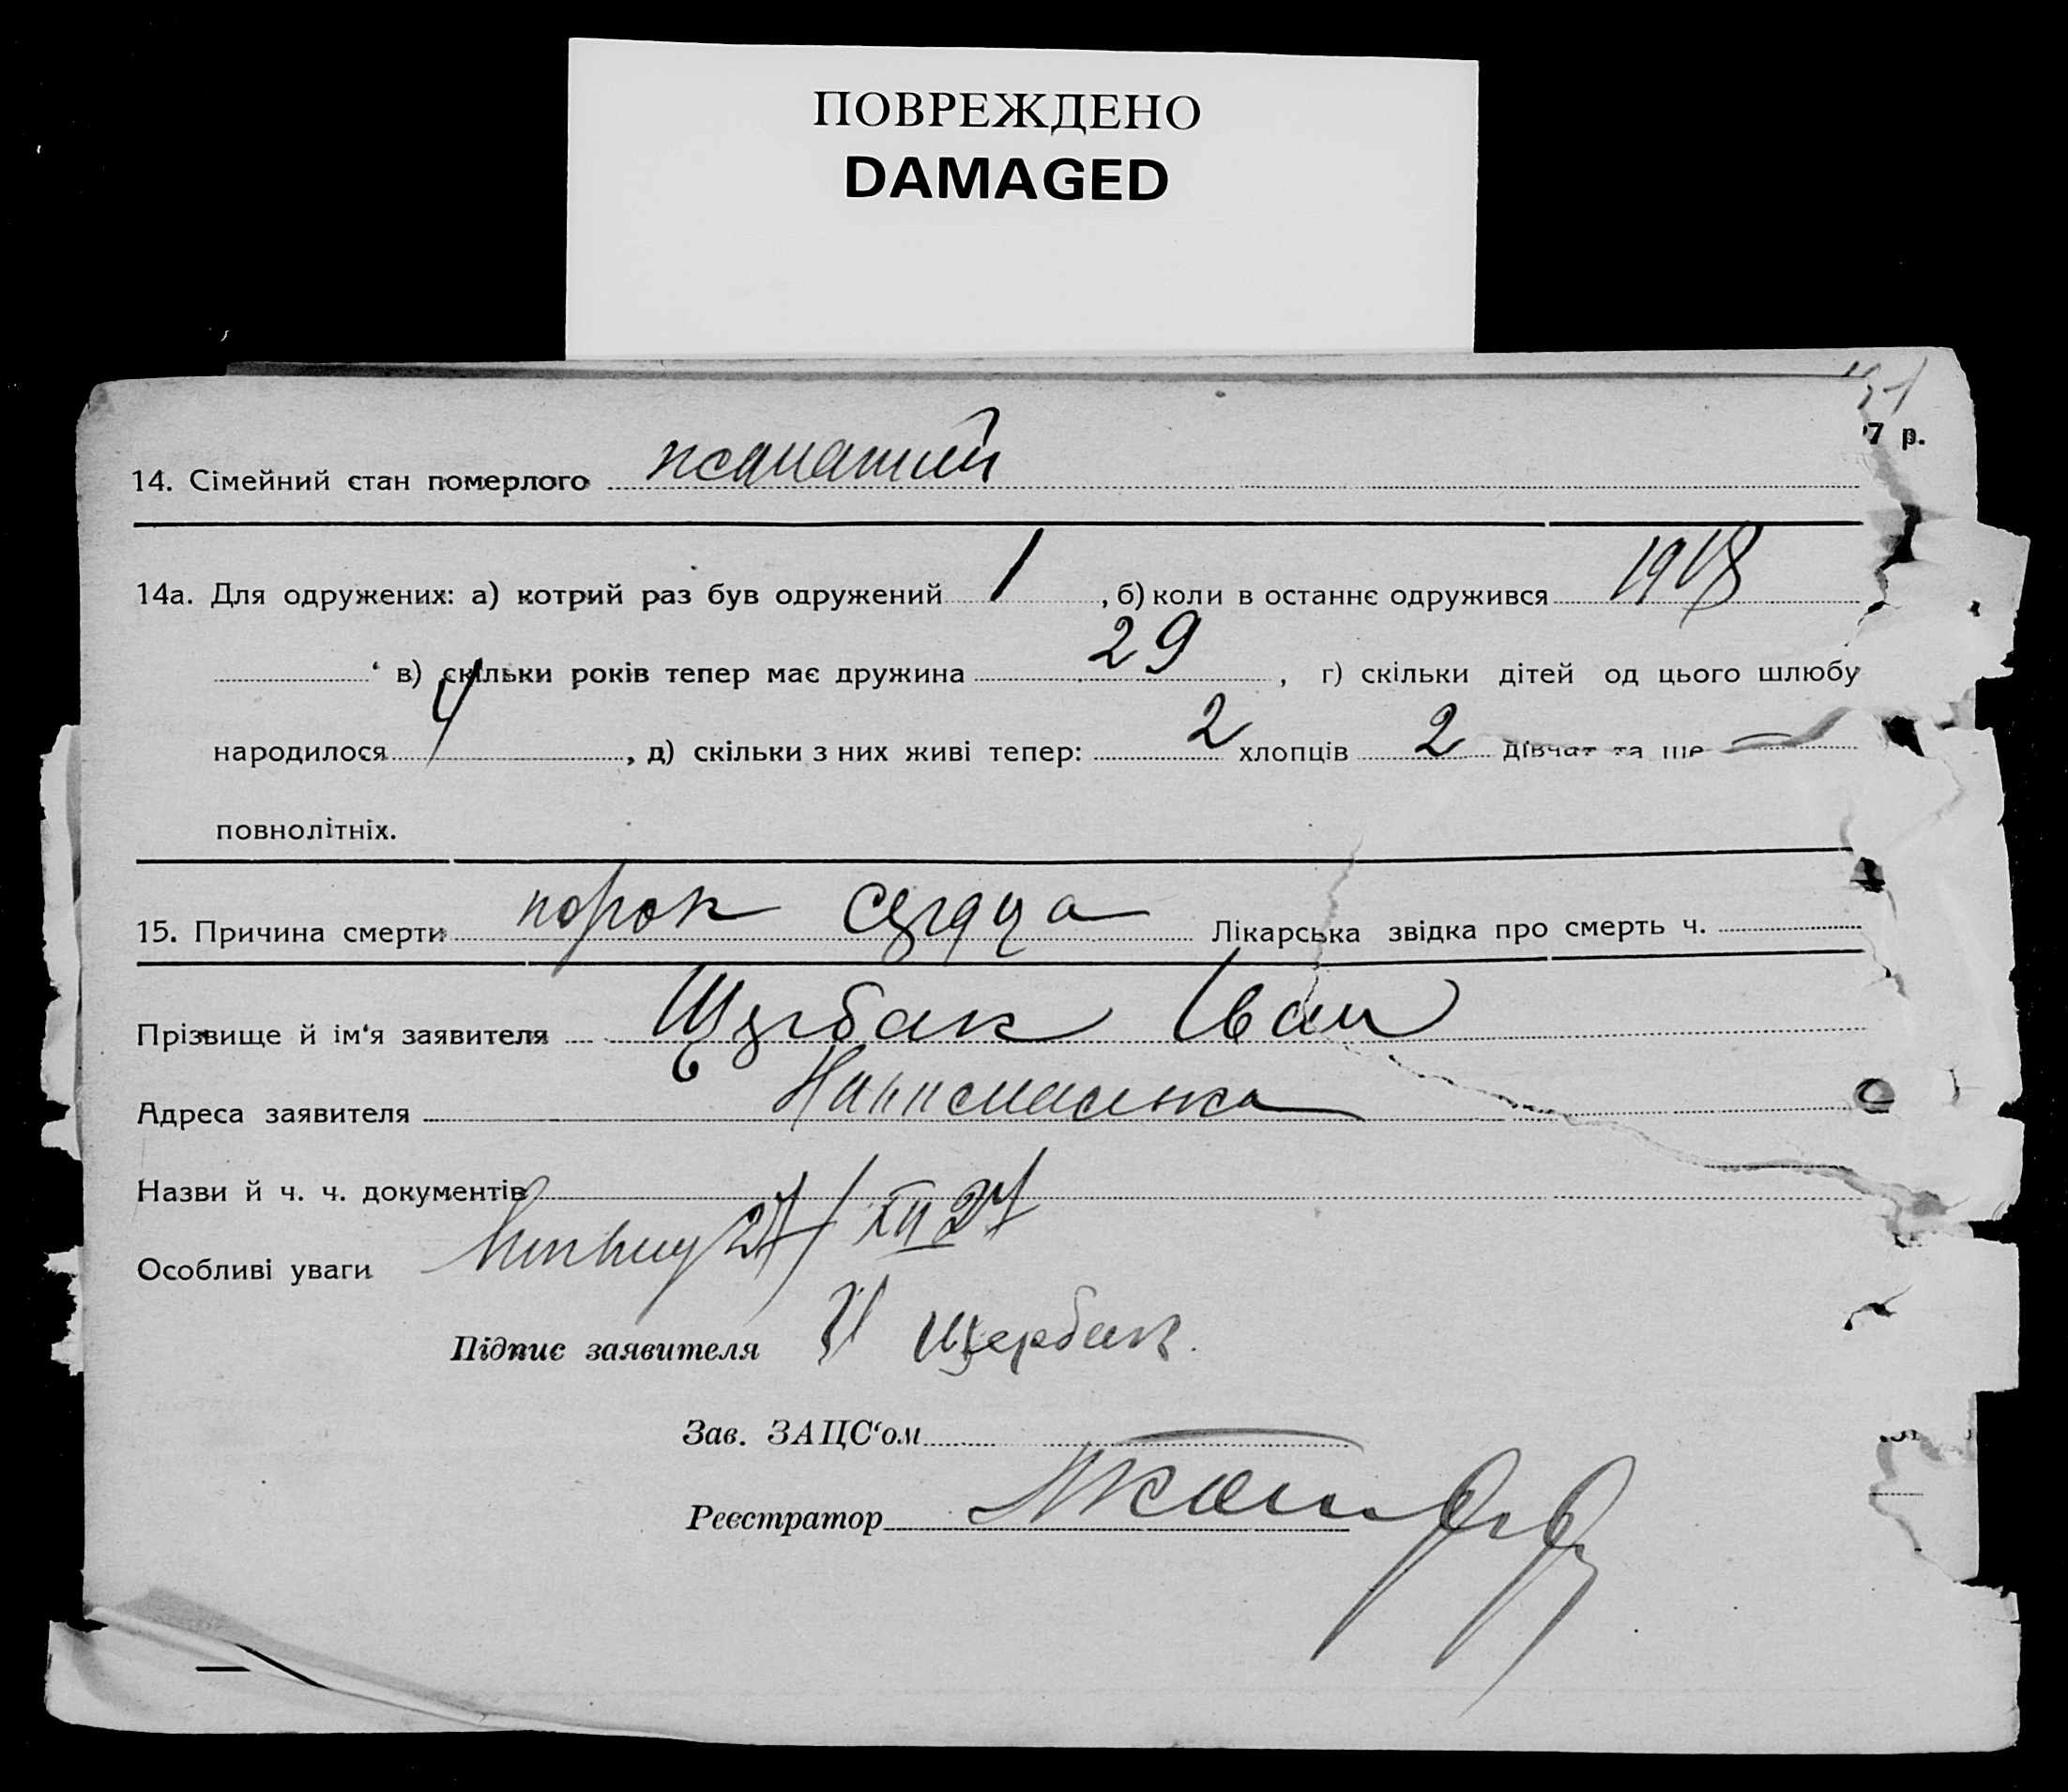 ПОВРЕЖДЕНО
DAMAGED
7 р.
14. Сімейний стан померлого жанатий
14а. Для одружених: а) котрий раз був одружений 1, б) коли в останнє одружився 1918
в) скільки років тепер має дружина 29, г) скільки дітей од цього шлюбу
народилося 4, д) скільки з них живі тепер: 2 хлопців 2 дівчат та ще —
повнолітніх.
15. Причина смерти порок сердца Лікарська звідка про смерть ч.
Прізвище й ім‘я заявителя Щербак Іван
Адреса заявителя
Назви й ч. ч. документів
Особливі уваги 27/XII 27
Підпис заявителя И Щербак.
Зав. ЗАЦС‘ом
Реєстратор